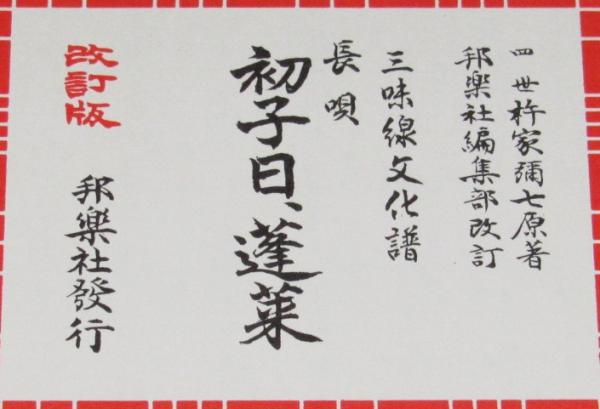 四世杵家彌七原著
邦樂社編集部改訂
三味線文化譜
長唄
初子日、蓬莱
改訂版
邦樂社發行